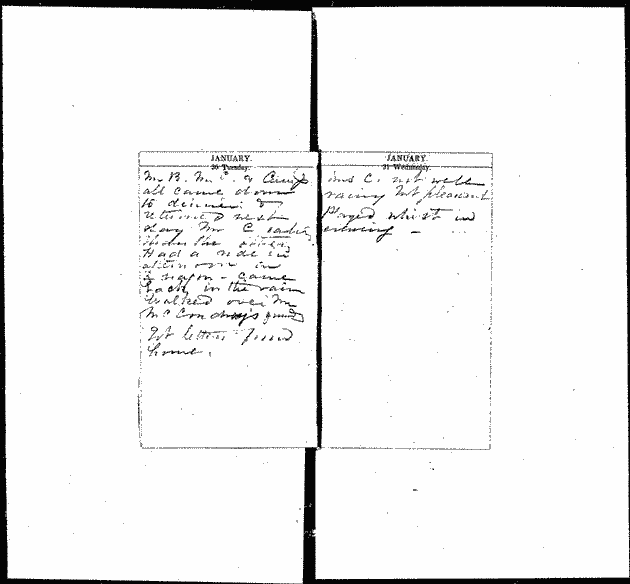 JANUARY.
30 Tuesday.
Mr B. Mr C. &
all came down
to dinner &
returned next
day Mr C
than the
Had a ride in
afternoon in
wagon - came
back in the rain
Walked over Mr
McCondray's
Got letters from
home.
JANUARY.
31 Wednesday.
Mrs C. not well
rainy not pleasant
Played whist in
evening -